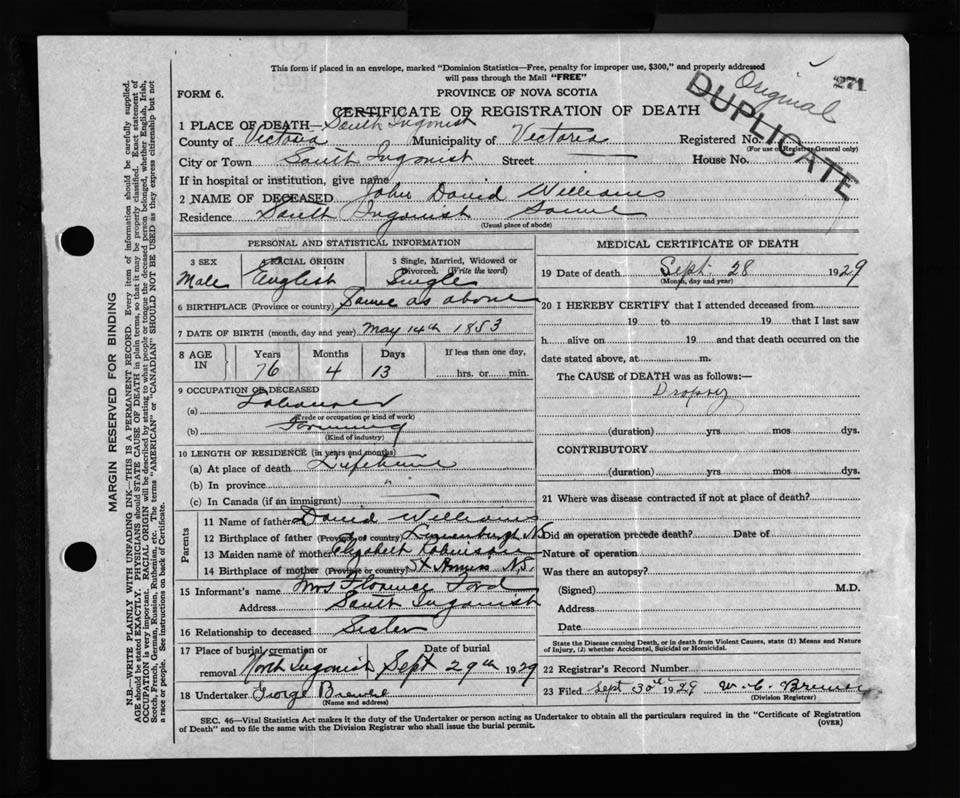 This form if placed in an envelope, marked "Dominion Statistics—Free, penalty for improper use, $300," and properly addressed
will pass through the Mail "FREE"
271
Original
DUPLICATE
FORM 6.
PROVINCE OF NOVA SCOTIA
CERTIFICATE OF REGISTRATION OF DEATH
1 PLACE OF DEATH— South Ingonish
County of Victoria Municipality of Victoria Registered No.
(For use of Registrar General only)
City or Town South Ingonish Street House No.
If in hospital or institution, give name
2 NAME OF DECEASED John David Williams
Residence South Ingonish Same
(Usual place of abode)
PERSONAL AND STATISTICAL INFORMATION
3 SEX 4 RACIAL ORIGIN 5 Single, Married, Widowed or
Divorced. (Write the word)
Male English Single
6 BIRTHPLACE (Province or country) Same as above
7 DATE OF BIRTH (month, day and year) May 14th 1853
8 AGE IN Years Months Days If less than one day,
76 4 13 hrs. or min.
9 OCCUPATION OF DECEASED
(a) Labourer
(Trade or occupation or kind of work)
(b) Farming
(Kind of industry)
10 LENGTH OF RESIDENCE (in years and months)
(a) At place of death Lifetime
(b) In province "
(c) In Canada (if an immigrant)
Parents
11 Name of father David Williams
12 Birthplace of father (Province or country) Lunenburgh N.S.
13 Maiden name of mother Elizabeth Robinson
14 Birthplace of mother (Province or country) St Anns N.S.
15 Informant's name Mrs Florence Ford
Address South Ingonish
16 Relationship to deceased Sister
17 Place of burial, cremation or Date of burial
removal North Ingonish Sept 29th 1929
18 Undertaker George
(Name and address)
MEDICAL CERTIFICATE OF DEATH
19 Date of death Sept. 28 1929
(Month, day and year)
20 I HEREBY CERTIFY that I attended deceased from
19 to 19 that I last saw
h alive on 19 and that death occurred on the
date stated above, at m.
The CAUSE of DEATH was as follows:—
Dropsy
(duration) yrs. mos. dys.
CONTRIBUTORY
(duration) yrs. mos. dys.
21 Where was disease contracted if not at place of death?
Did an operation precede death? Date of
Nature of operation
Was there an autopsy?
(Signed) M.D.
Address
Date
State the Disease causing Death, or in death from Violent Causes, state (1) Means and Nature
of Injury, (2) whether Accidental, Suicidal or Homicidal.
22 Registrar's Record Number
23 Filed Sept 30th 1929 W. C.
(Division Registrar)
SEC. 46—Vital Statistics Act makes it the duty of the Undertaker or person acting as Undertaker to obtain all the particulars required in the "Certificate of Registration
of Death" and to file the same with the Division Registrar who shall issue the burial permit. (OVER)
MARGIN RESERVED FOR BINDING
N.B.—WRITE PLAINLY WITH UNFADING INK—THIS IS A PERMANENT RECORD. Every item of information should be carefully supplied.
AGE should be stated EXACTLY. PHYSICIANS should STATE CAUSE OF DEATH in plain terms, so that it may be properly classified. Exact statement of
OCCUPATION is very important. RACIAL ORIGIN will be described by stating to what people or tongue the deceased person belonged, whether English, Irish,
Scotch, French, German, Russian, Ruthenian, etc. The terms "AMERICAN" or "CANADIAN" SHOULD NOT BE USED as they express citizenship but not
a race or people. See instructions on back of Certificate.